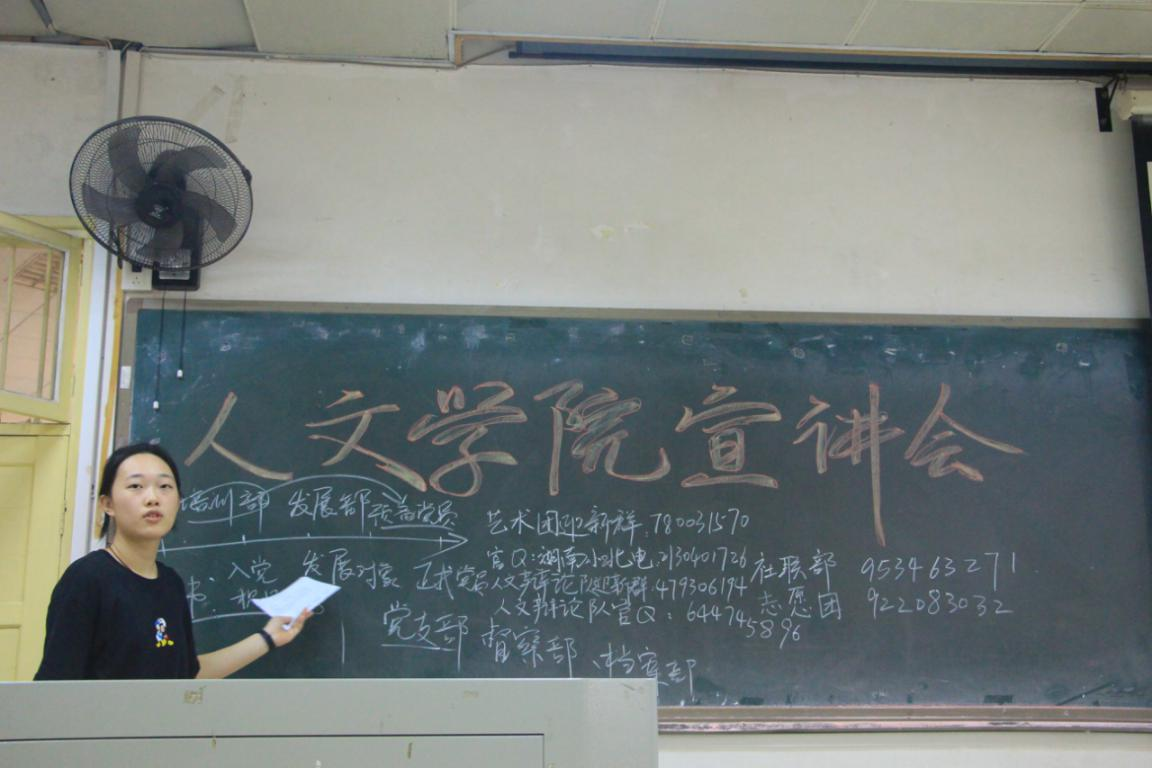 人文学院宣讲会
培训部 发展部 预备党员
艺术团迎新群:780031570
官Q:湖南小北电.2130401726
社联部 953463271
入党 发展对象 正式党员
人文辩论队迎新群:479306194
志愿团 922083032
人文辩论队官Q:644745896
党支部 督察部、档案部